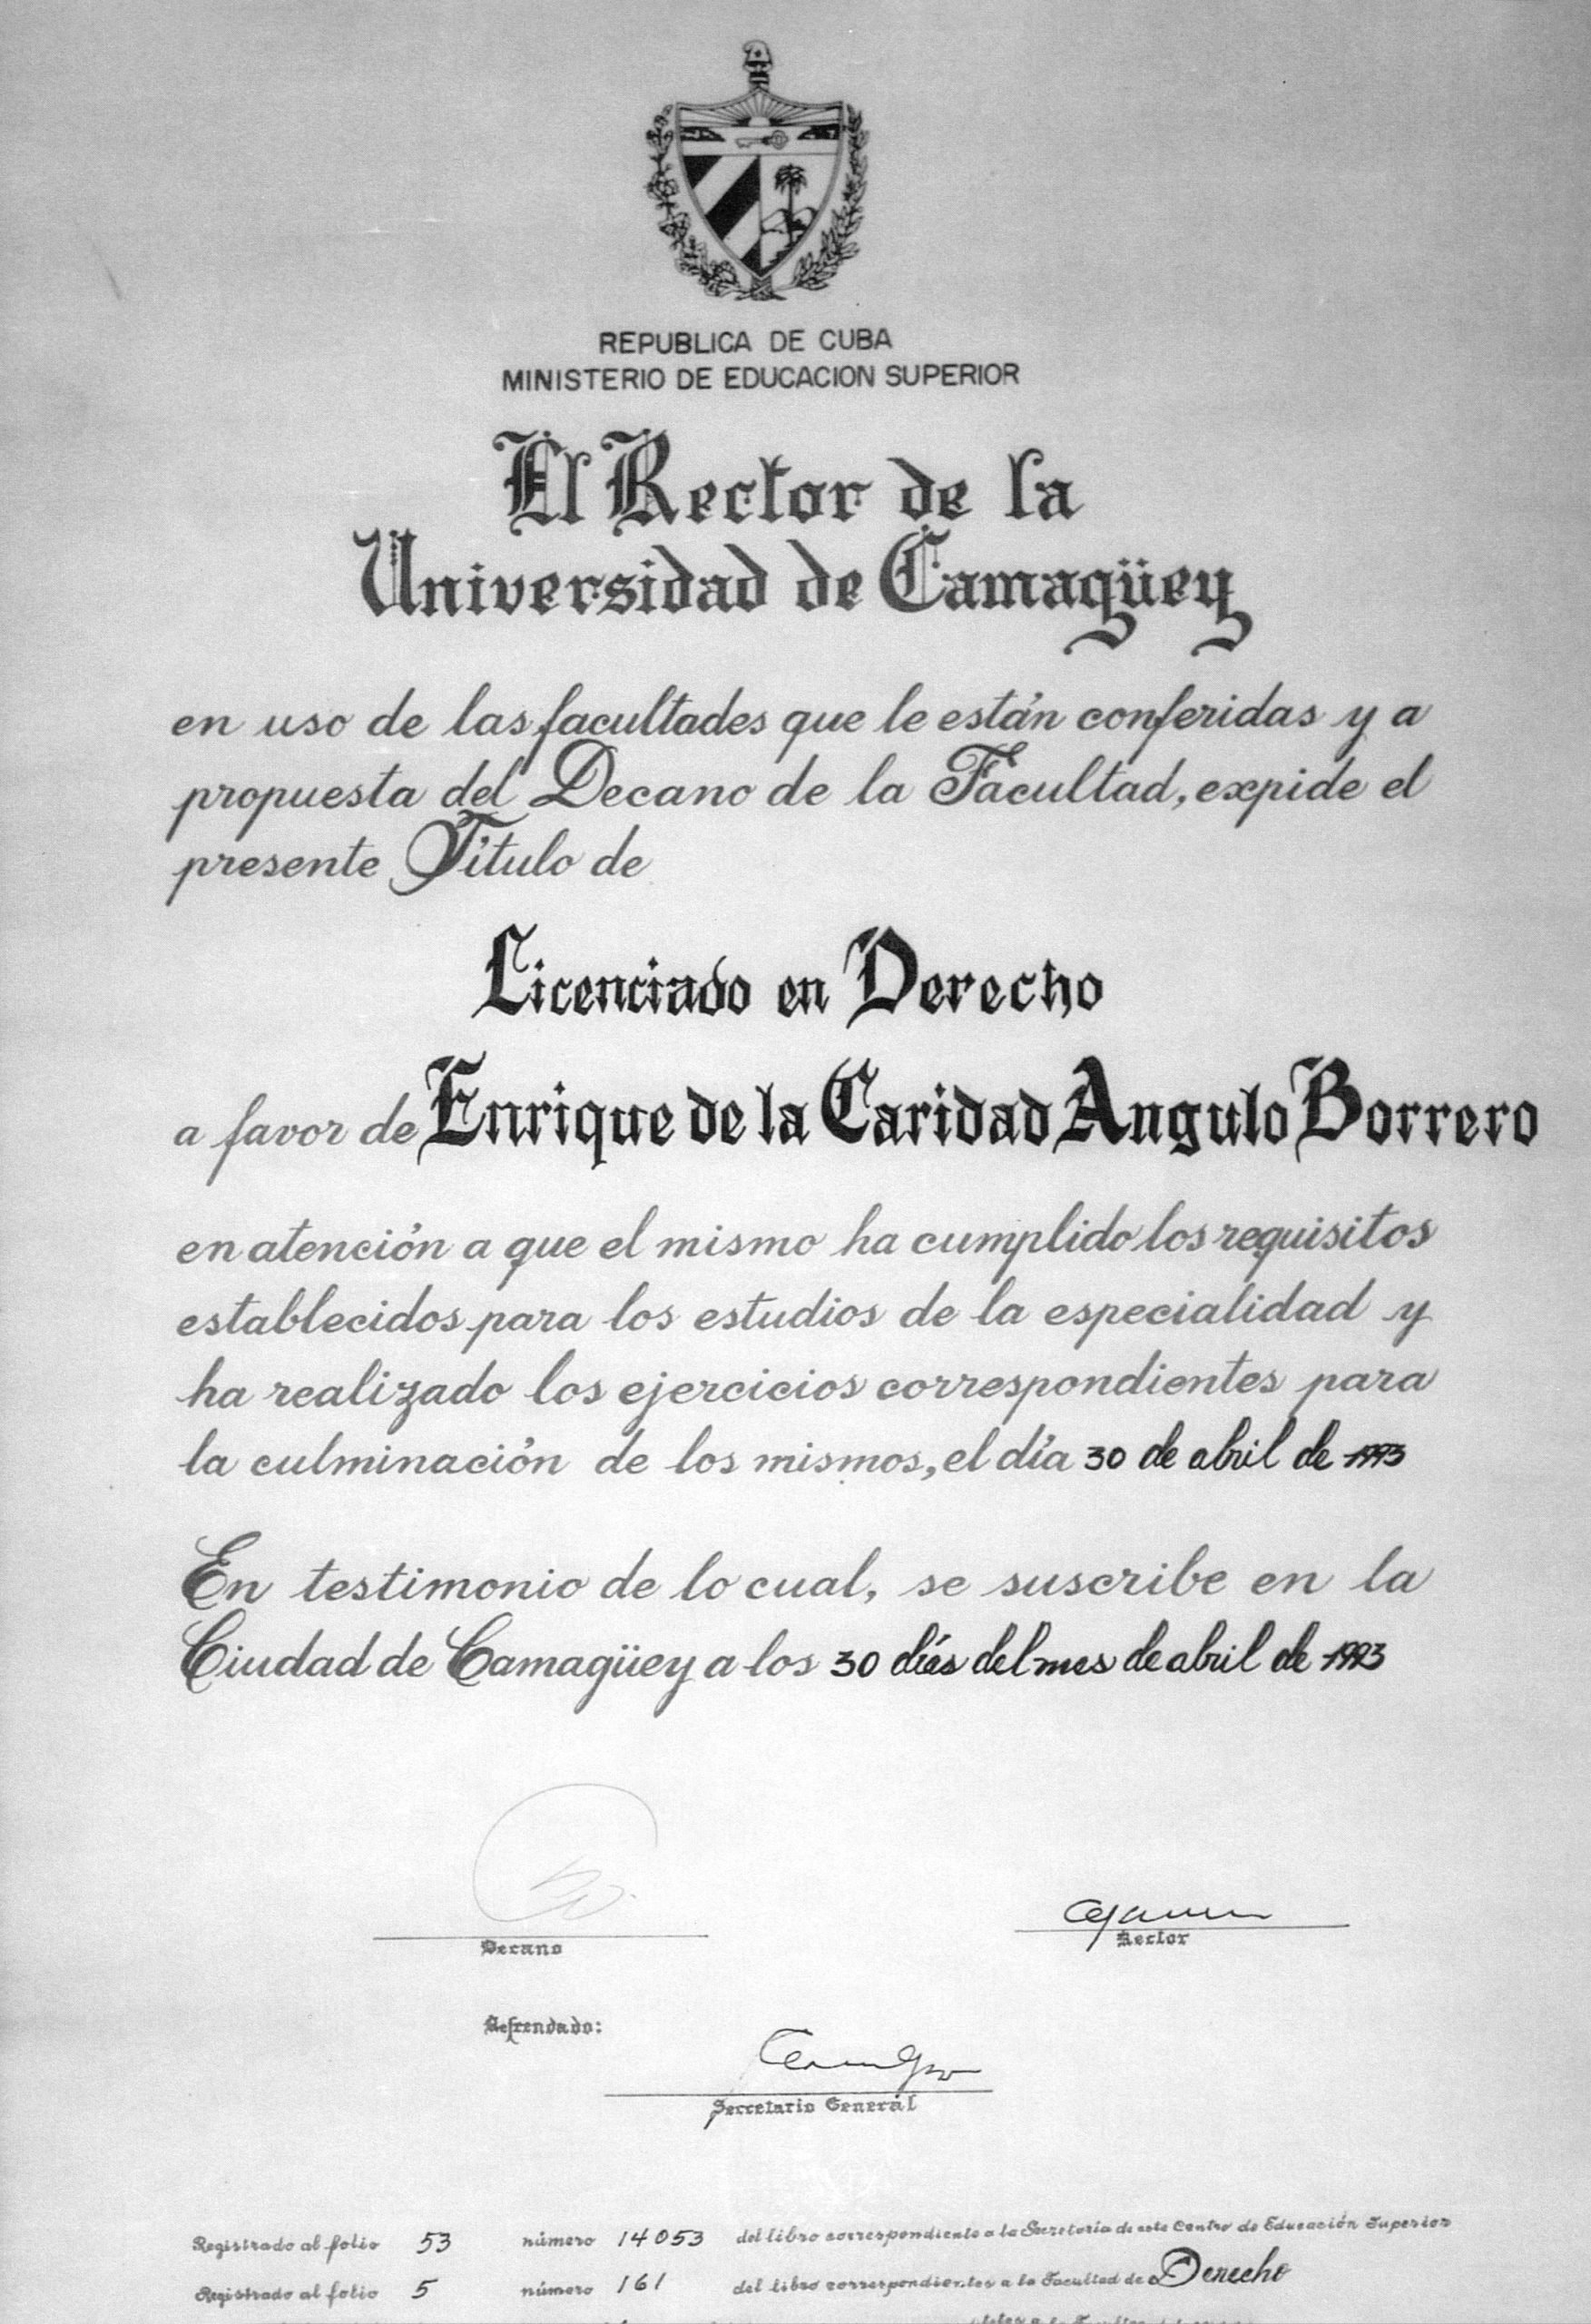 REPUBLICA DE CUBA
MINISTERIO DE EDUCACION SUPERIOR
El Rector de la
Universidad de Camagüey
en uso de las facultades que le están conferidas y a
propuesta del Decano de la Facultad, expide el
presente Título de
Licenciado en Derecho
a favor de Enrique de la Caridad Angulo Borrero
en atención a que el mismo ha cumplido los requisitos
establecidos para los estudios de la especialidad y
ha realizado los ejercicios correspondientes para
la culminación de los mismos, el día 30 de abril de 1993
En testimonio de lo cual, se suscribe en la
Ciudad de Camagüey a los 30 días del mes de abril de 1993
Decano
Rector
Refrendado:
Secretario General
Registrado al folio 53 número 14053 del libro correspondiente a la Secretaría de este Centro de Educación Superior
Registrado al folio 5 número 161 del libro correspondientes a la Facultad de Derecho